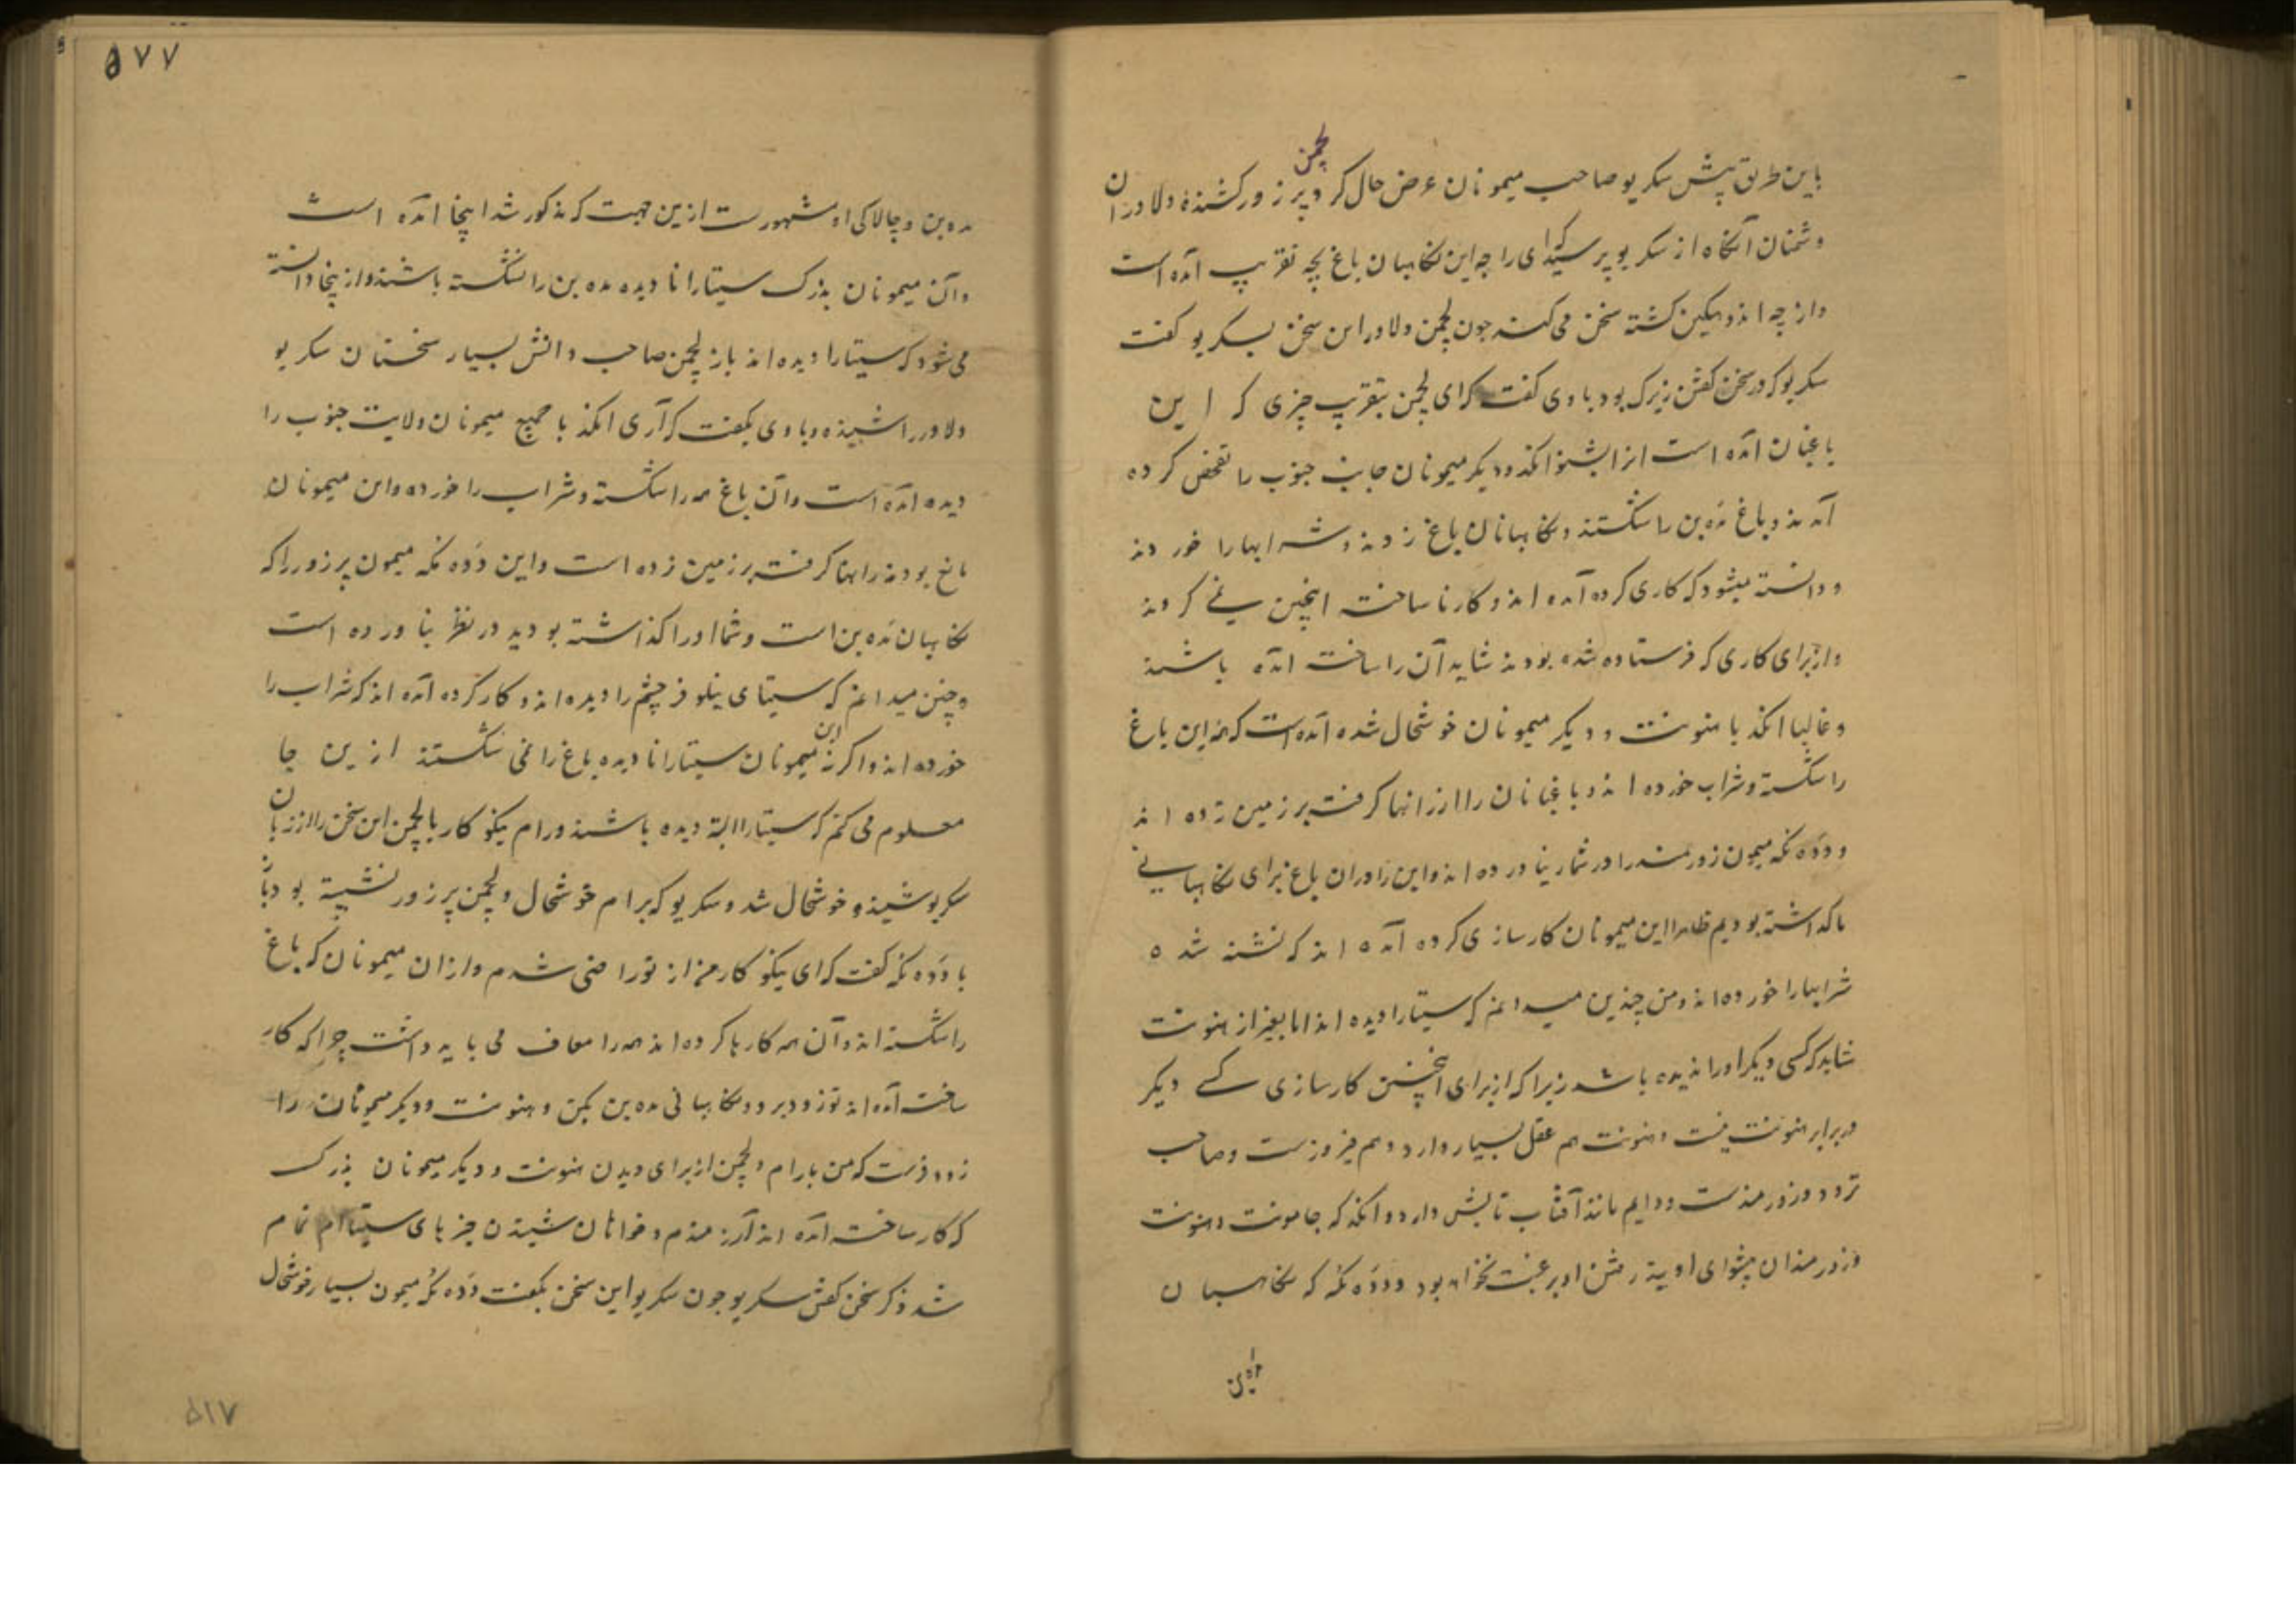 لچمن
باین طریق پیش سکریو صاحب میمونان عرض حال کرد پرزور کشندهٔ دلاوران
دشمنان آنگاه از سکریو پرسید که ای راجه این نکاهبان باغ بچه تقریب آمده است
و از چه اندوهگین کشته سخن می کند چون لچمن دلاور این سخن بسکریو گفت
سکریو که در سخن گفتن زیرک بود با وی گفت که ای لچمن بتقریب چیزی که این
باغبان آمده است انرا بشنو انکد و دیگر میمونان جانب جنوب را تفحص کرده
آمدند و باغ مده بن را شکستند و نکاهبانان باغ زدند و شرابها را خوردند
و دانسته میشود که کاری کرده آمده اند و کار ناساخته اینچنین نمی کردند
و از برای کاری که فرستاده شده بودند شاید آن را ساخته آمده باشند
و غالبا انکد با هنونت و دیگر میمونان خوشحال شده آمده است که این باغ
را شکسته و شراب خورده اند و باغبانان را از رانها کرفته بر زمین زده اند
و دده مکه میمون زورمند را در شمار نیاورده اند و این را در آن باغ برای نکاهبانی
ما کذاشته بودیم ظاهرا این میمونان کارسازی کرده آمده اند که نشسته شده
شرابها را خورده اند و من چنین میدانم که سیتا را دیده اند اما بغیر از هنونت
شاید که کسی دیگر او را ندیده باشد زیرا که از برای اینچنین کارسازی کسی دیگر
در برابر هنونت نیست و هنونت هم عقل بسیار دارد و هم فیروزست و صاحب
تردد و زورمندست و دایم مانند آفتاب تابش دارد و انکد که جامونت و هنونت
و زورمندان پیشوای او بیند رفتن او بر عبث نخواهد بود و دده مکه که نکاهبان
مده بن
۵۷۷
مده بن و چالاکی او مشهورست ازین جهت که مذکور شد اینجا آمده است
و آن میمونان بزرک سیتا را نادیده مده بن را نشکسته باشند و ازینجا دانسته
می شود که سیتا را دیده اند باز لچمن صاحب دانش بسیار سخنان سکریو
دلاور را شنیده و با وی بگفت که آری انکد با جمیع میمونان ولایت جنوب را
دیده آمده است و آن باغ همه را شکسته و شراب را خورده و این میمونان
مانع بودند رانها کرفته بر زمین زده است و این دده مکه میمون پرزور را که
نکاهبان مده بن است و شما او را کذاشته بودید در نظر نیاورده است
و چنین میدانم که سیتای نیلوفر چشم را دیده اند و کار کرده آمده اند که شراب را
خورده اند و اکر نه این میمونان سیتا را نادیده باغ را نمی شکستند ازین جا
معلوم می کنم که سیتا را البته دیده باشند و رام نیکو کار با لچمن این سخن را از زبان
سکریو شنیده خوشحال شد و سکریو که برام خوشحال و لچمن پرزور نشسته بود
با دده مکه گفت که ای نیکو کار من از تو راضی شدم و از ان میمونان که باغ
را شکسته اند و آن همه کارها کرده اند همه را معاف می باید داشت چرا که کار
ساخته آمده اند تو زود برو و نکاهبانی مده بن بکن و هنونت و دیگر میمونان را
زود فرست که من با رام و لچمن از برای دیدن هنونت و دیگر میمونان بزرک
که کار ساخته آمده اند آرزومندم و خواهان شنیدن خبرهای سیتاام تمام
شد ذکر سخن گفتن سکریو چون سکریو این سخن بگفت دده مکه میمون بسیار خوشحال
۵۱۷